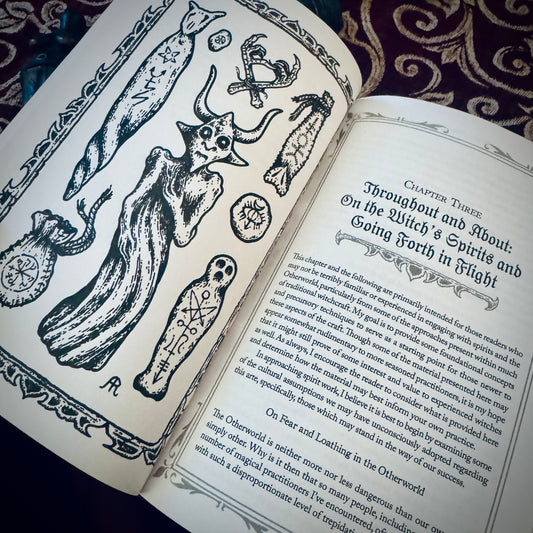 AR
CHAPTER THREE
Throughout and About:
On the Witch's Spirits and
Going Forth in Flight
This chapter and the following are primarily intended for those readers who
may not be terribly familiar or experienced in engaging with spirits and the
Otherworld, particularly from some of the approaches present within much
of traditional witchcraft. My goal is to provide some foundational concepts
and precursory techniques to serve as a starting point for those newer to
these aspects of the craft. Though some of the material presented here may
appear somewhat rudimentary to more seasoned practitioners, it is my hope
that it might still prove of some interest and value to experienced witches
as well. As always, I encourage the reader to consider what is provided here
and determine how the material may best inform your own practice.
In approaching spirit work, I believe it is best to begin by examining some
of the cultural assumptions we may have unconsciously adopted regarding
this art, specifically those which may stand in the way of our success.
On Fear and Loathing in the Otherworld
The Otherworld is neither more nor less dangerous than our own
simply other. Why is it then that so many people, including
number of magical practitioners I've encountered, of
with such a disproportionate level of trepidat